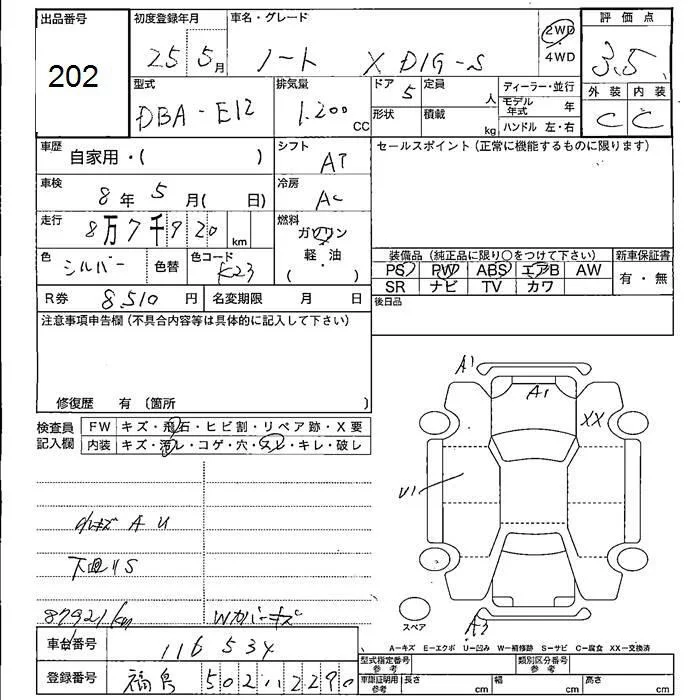 出品番号 初度登録年月 車名・グレード 評価点
202 25 5月 ノート X DIG-S 2WD・4WD 3.5
型式 排気量 ドア 定員 ディーラー・並行 外装 内装
DBA-E12 1.200 CC 5 人 モデル年式 年 C C
形状 積載 kg ハンドル 左・右
車歴 自家用・( ) シフト AT セールスポイント(正常に機能するものに限ります)
車検 8年 5月( 日) 冷房 AC
走行 8万7千920 km 燃料 ガソリン
色 シルバー 色替 色コード K23 軽・油 ( ) 装備品(純正品に限り○をつけて下さい) 新車保証書
PS PW ABS エアB AW 有・無
SR ナビ TV カワ
R券 8510円 名変期限 月 日 後日品
注意事項申告欄(不具合内容等は具体的に記入して下さい)
修復歴 有 〔箇所 〕
検査員記入欄 FW キズ・飛石・ヒビ割・リペア跡・X要
内装 キズ・汚レ・コゲ・穴・スレ・キレ・破レ
A1
A1
XX
U1
小キズ A U
下廻りS
87921km Wカバーキズ
スペア
A3
車台番号 116534
A−キズ E−エクボ U−凹み W−補修跡 S−サビ C−腐食 XX−交換済
型式指定番号 参考 類別区分番号 参考
登録番号 福島 502 2290
車庫証明用 参考 長さ cm 幅 cm 高さ cm